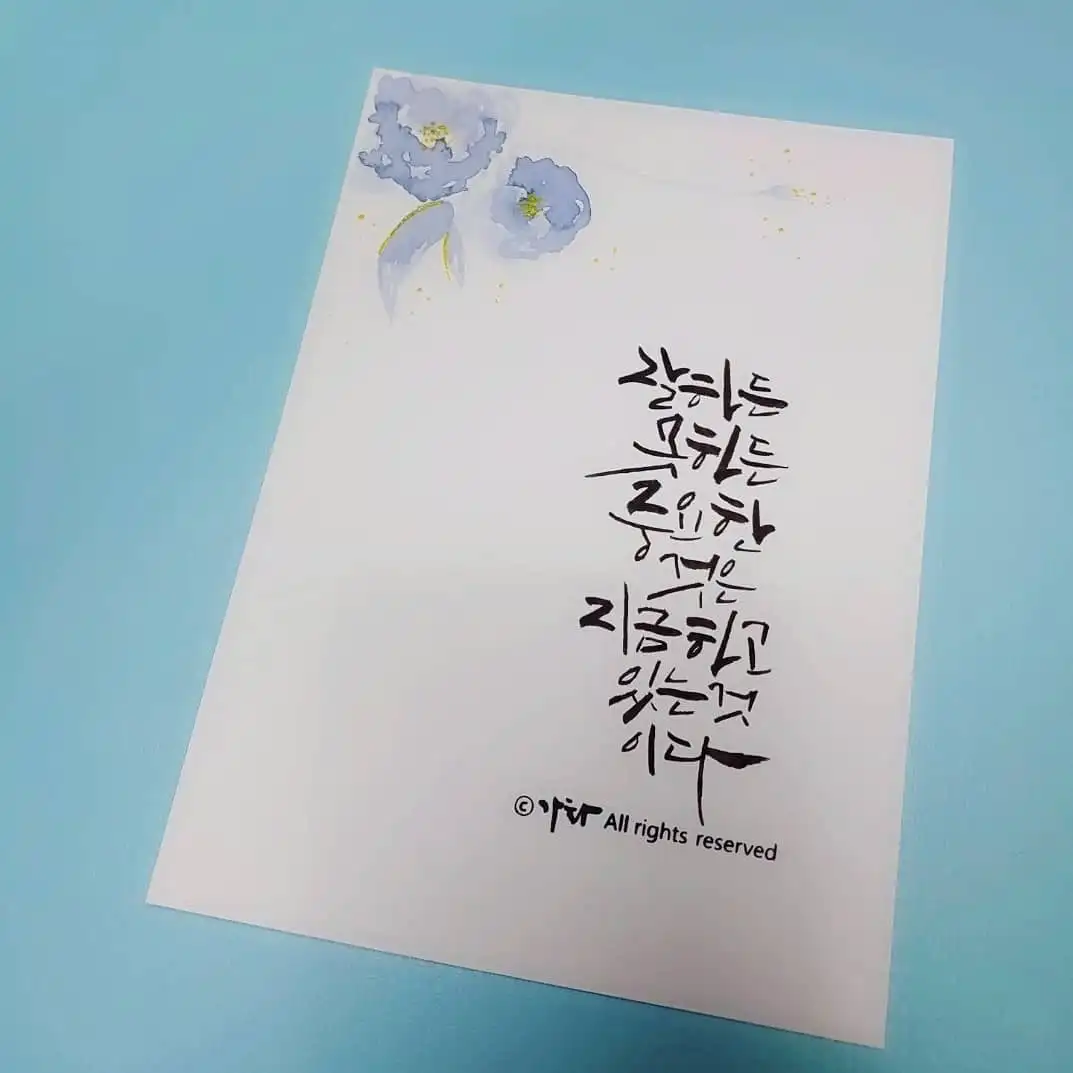 잘하든
못하든
중요한
것은
지금하고
있는것
이다
© 가화 All rights reserved